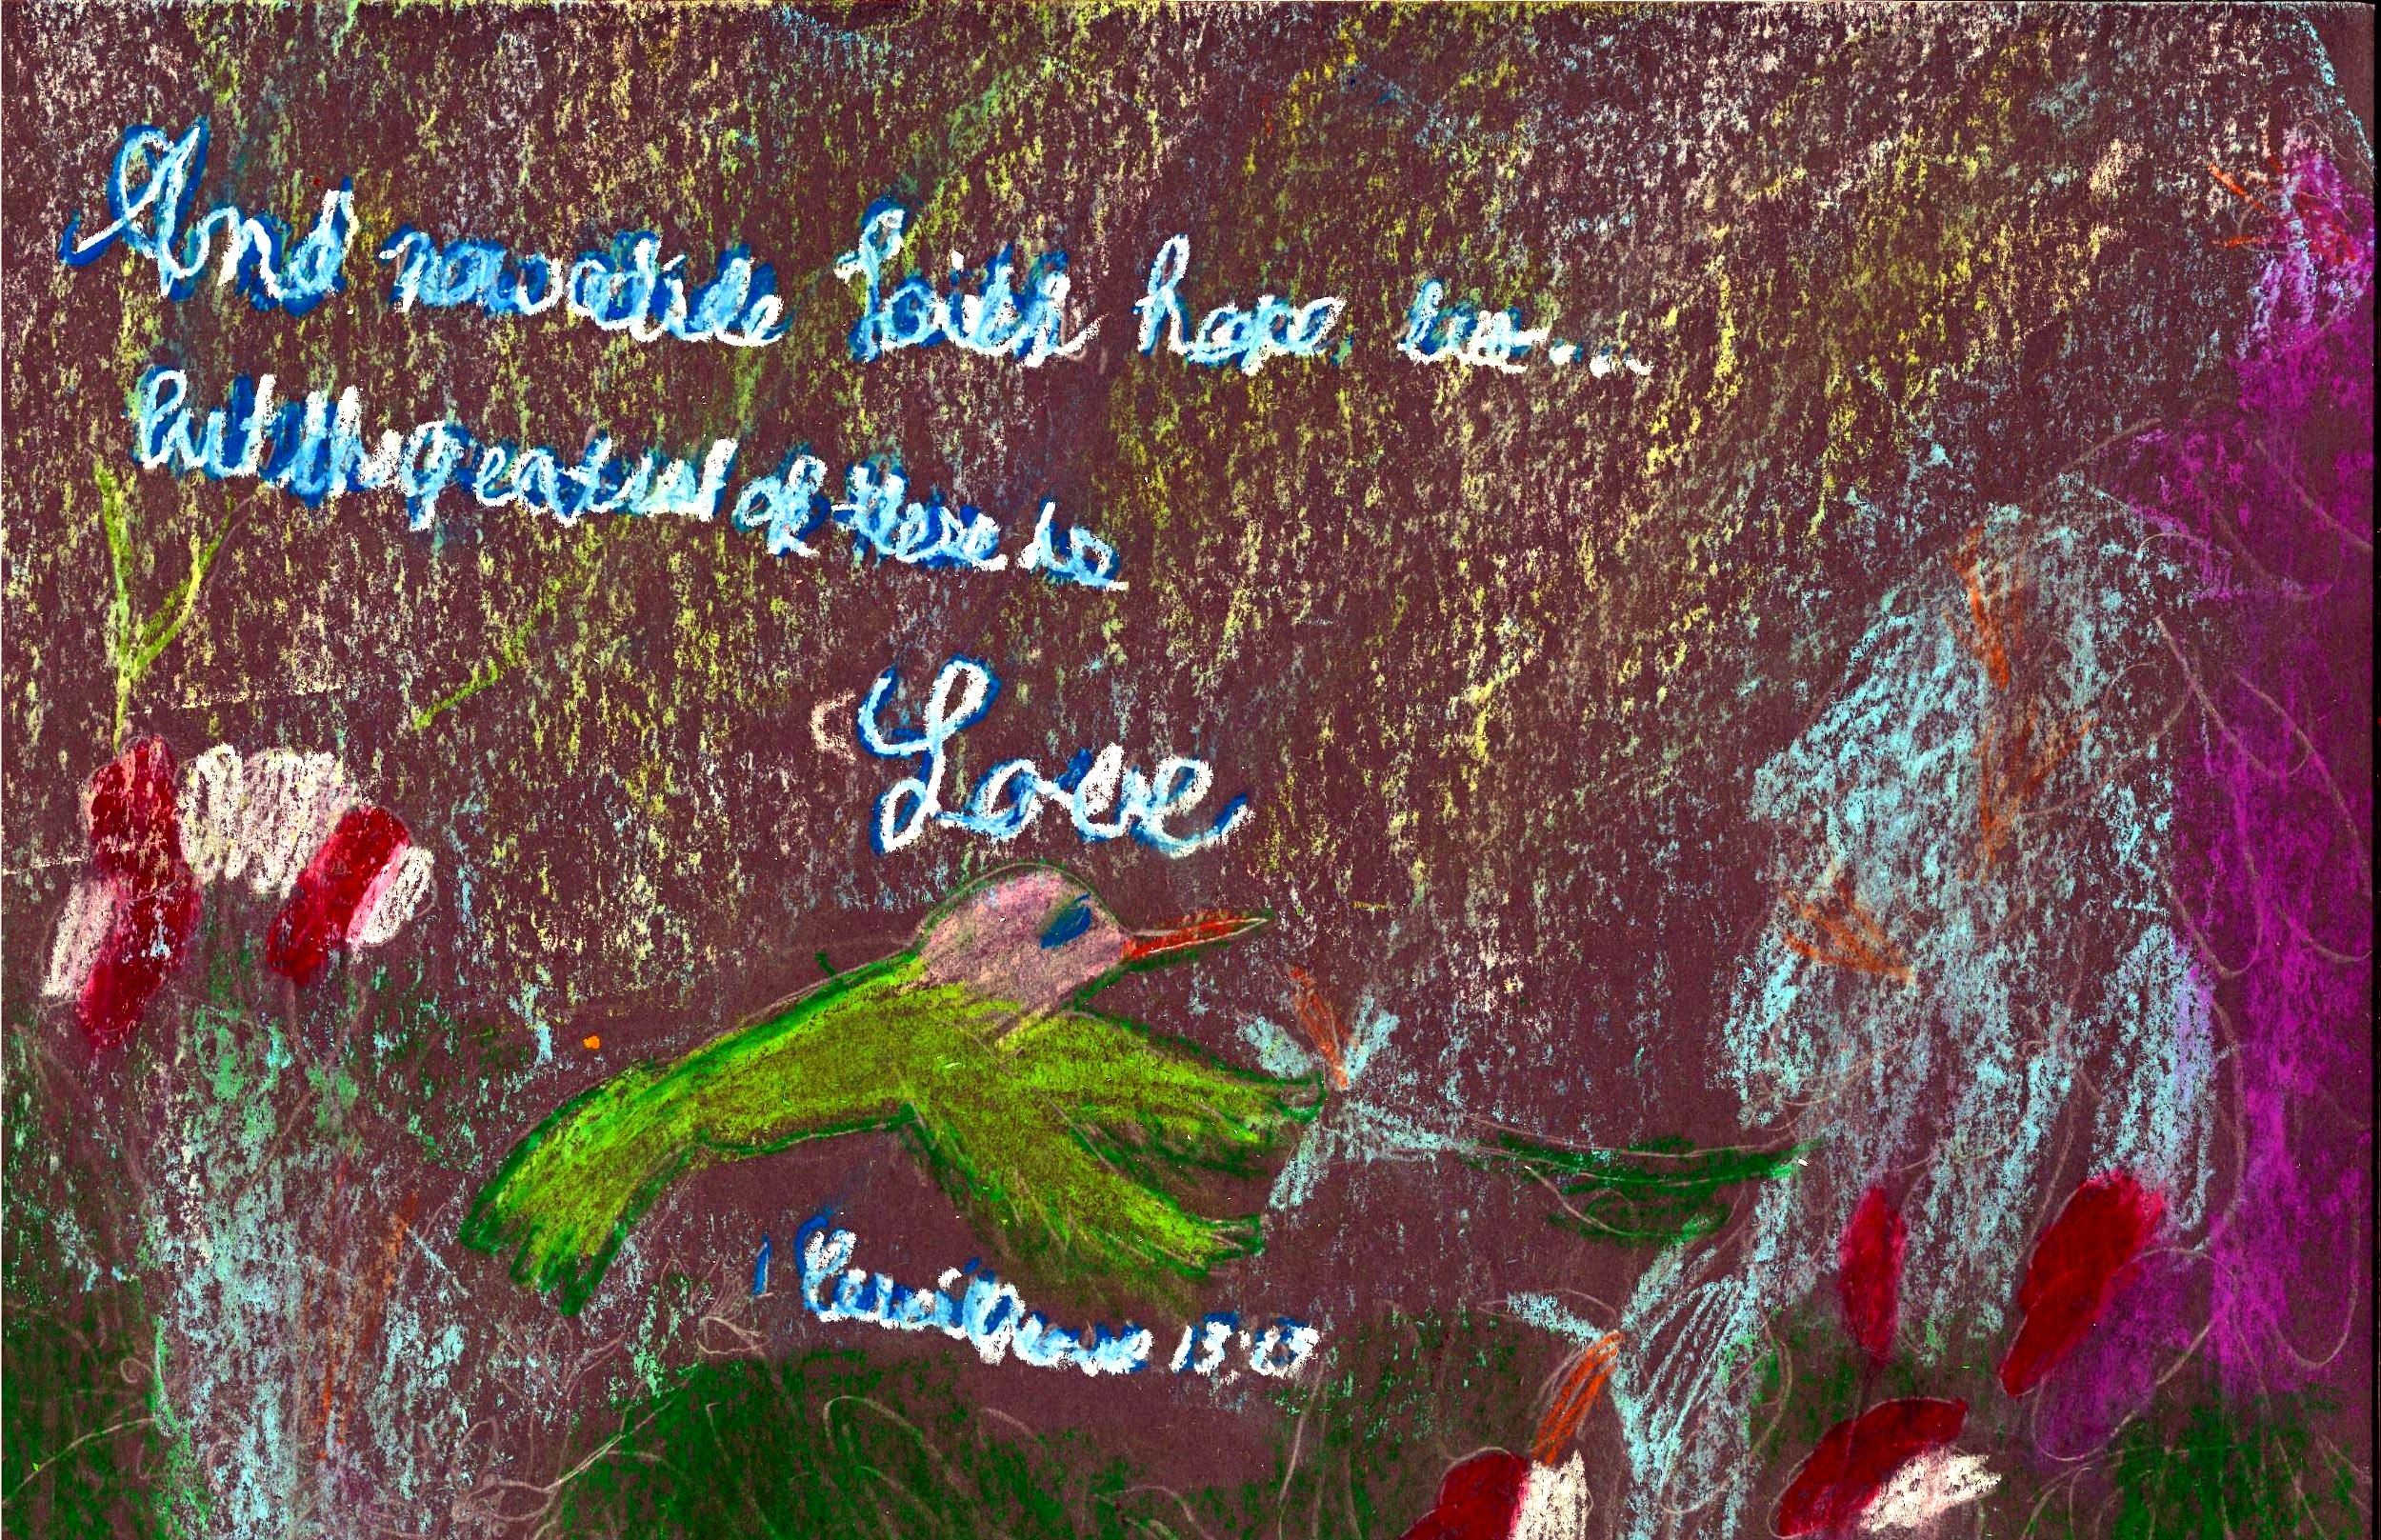 And now abide faith hope love...
but the greatest of these is
Love
1 Corinthians 13:13